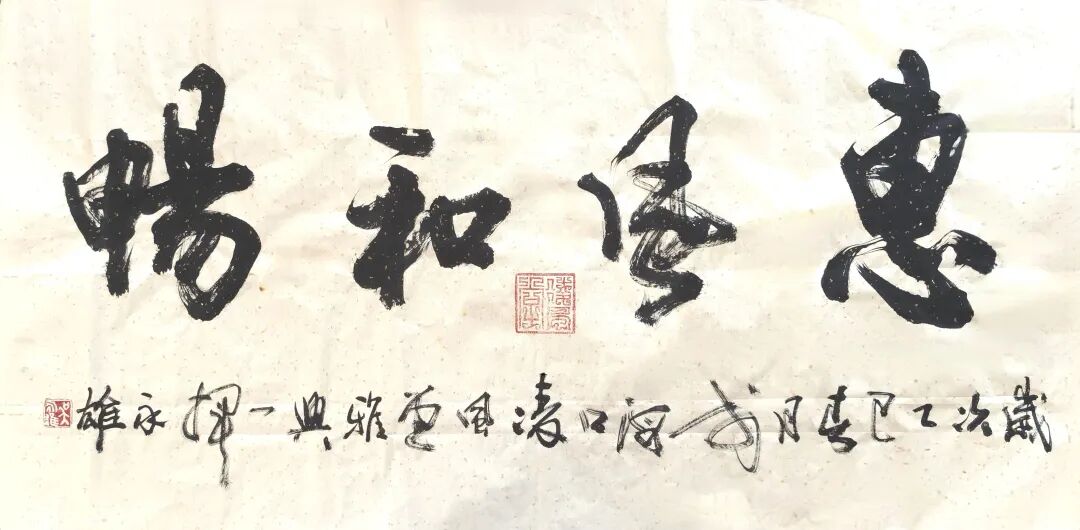 惠風和暢
歲次乙巳春月於海口凌風堂雅興一揮永雄